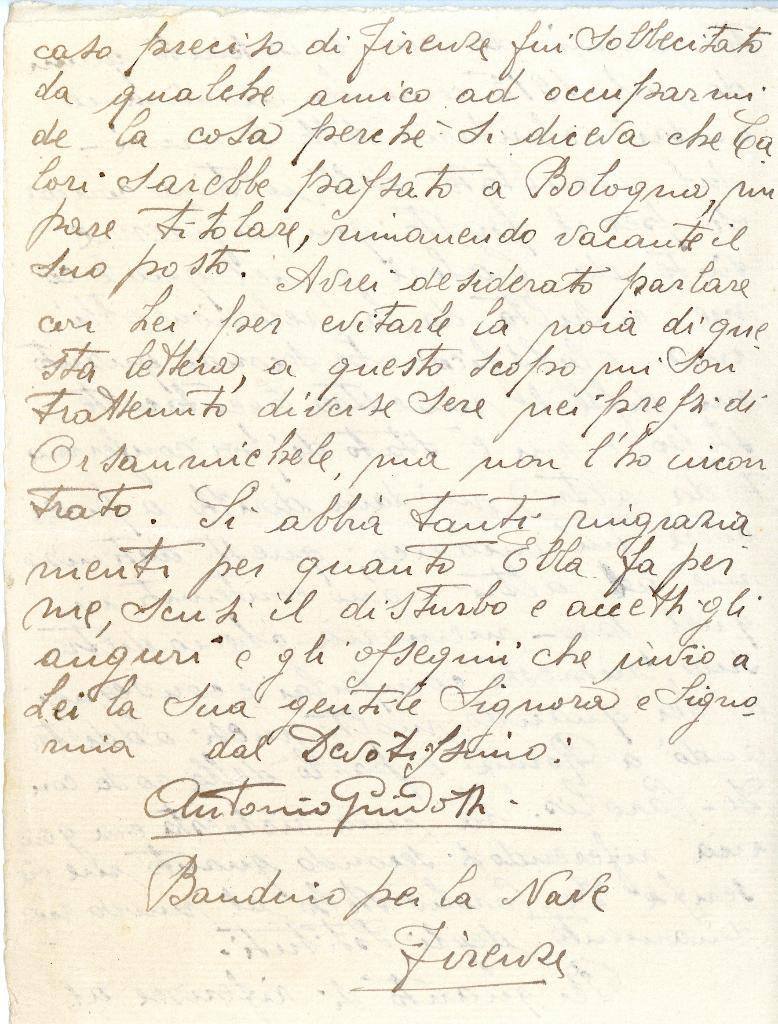 caso preciso di Firenze fui sollecitato
da qualche amico ad occuparmi
de la cosa perchè si diceva che Ca
lori sarebbe passato a Bologna, mi
pare titolare, rimanendo vacante il
suo posto. Avrei desiderato parlare
con Lei per evitarle la noia di que
sta lettera, a questo scopo mi son
trattenuto diverse sere nei pressi di
Orsanmichele, ma non l'ho incon
trato. Si abbia tanti ringrazia
menti per quanto Ella fa per
me, scusi il disturbo e accetti gli
auguri e gli ossequii che invio a
Lei la Sua gentile Signora e Signo-
rina dal Devotissimo:
Antonio Guidotti.
Bandino per la Nave
Firenze